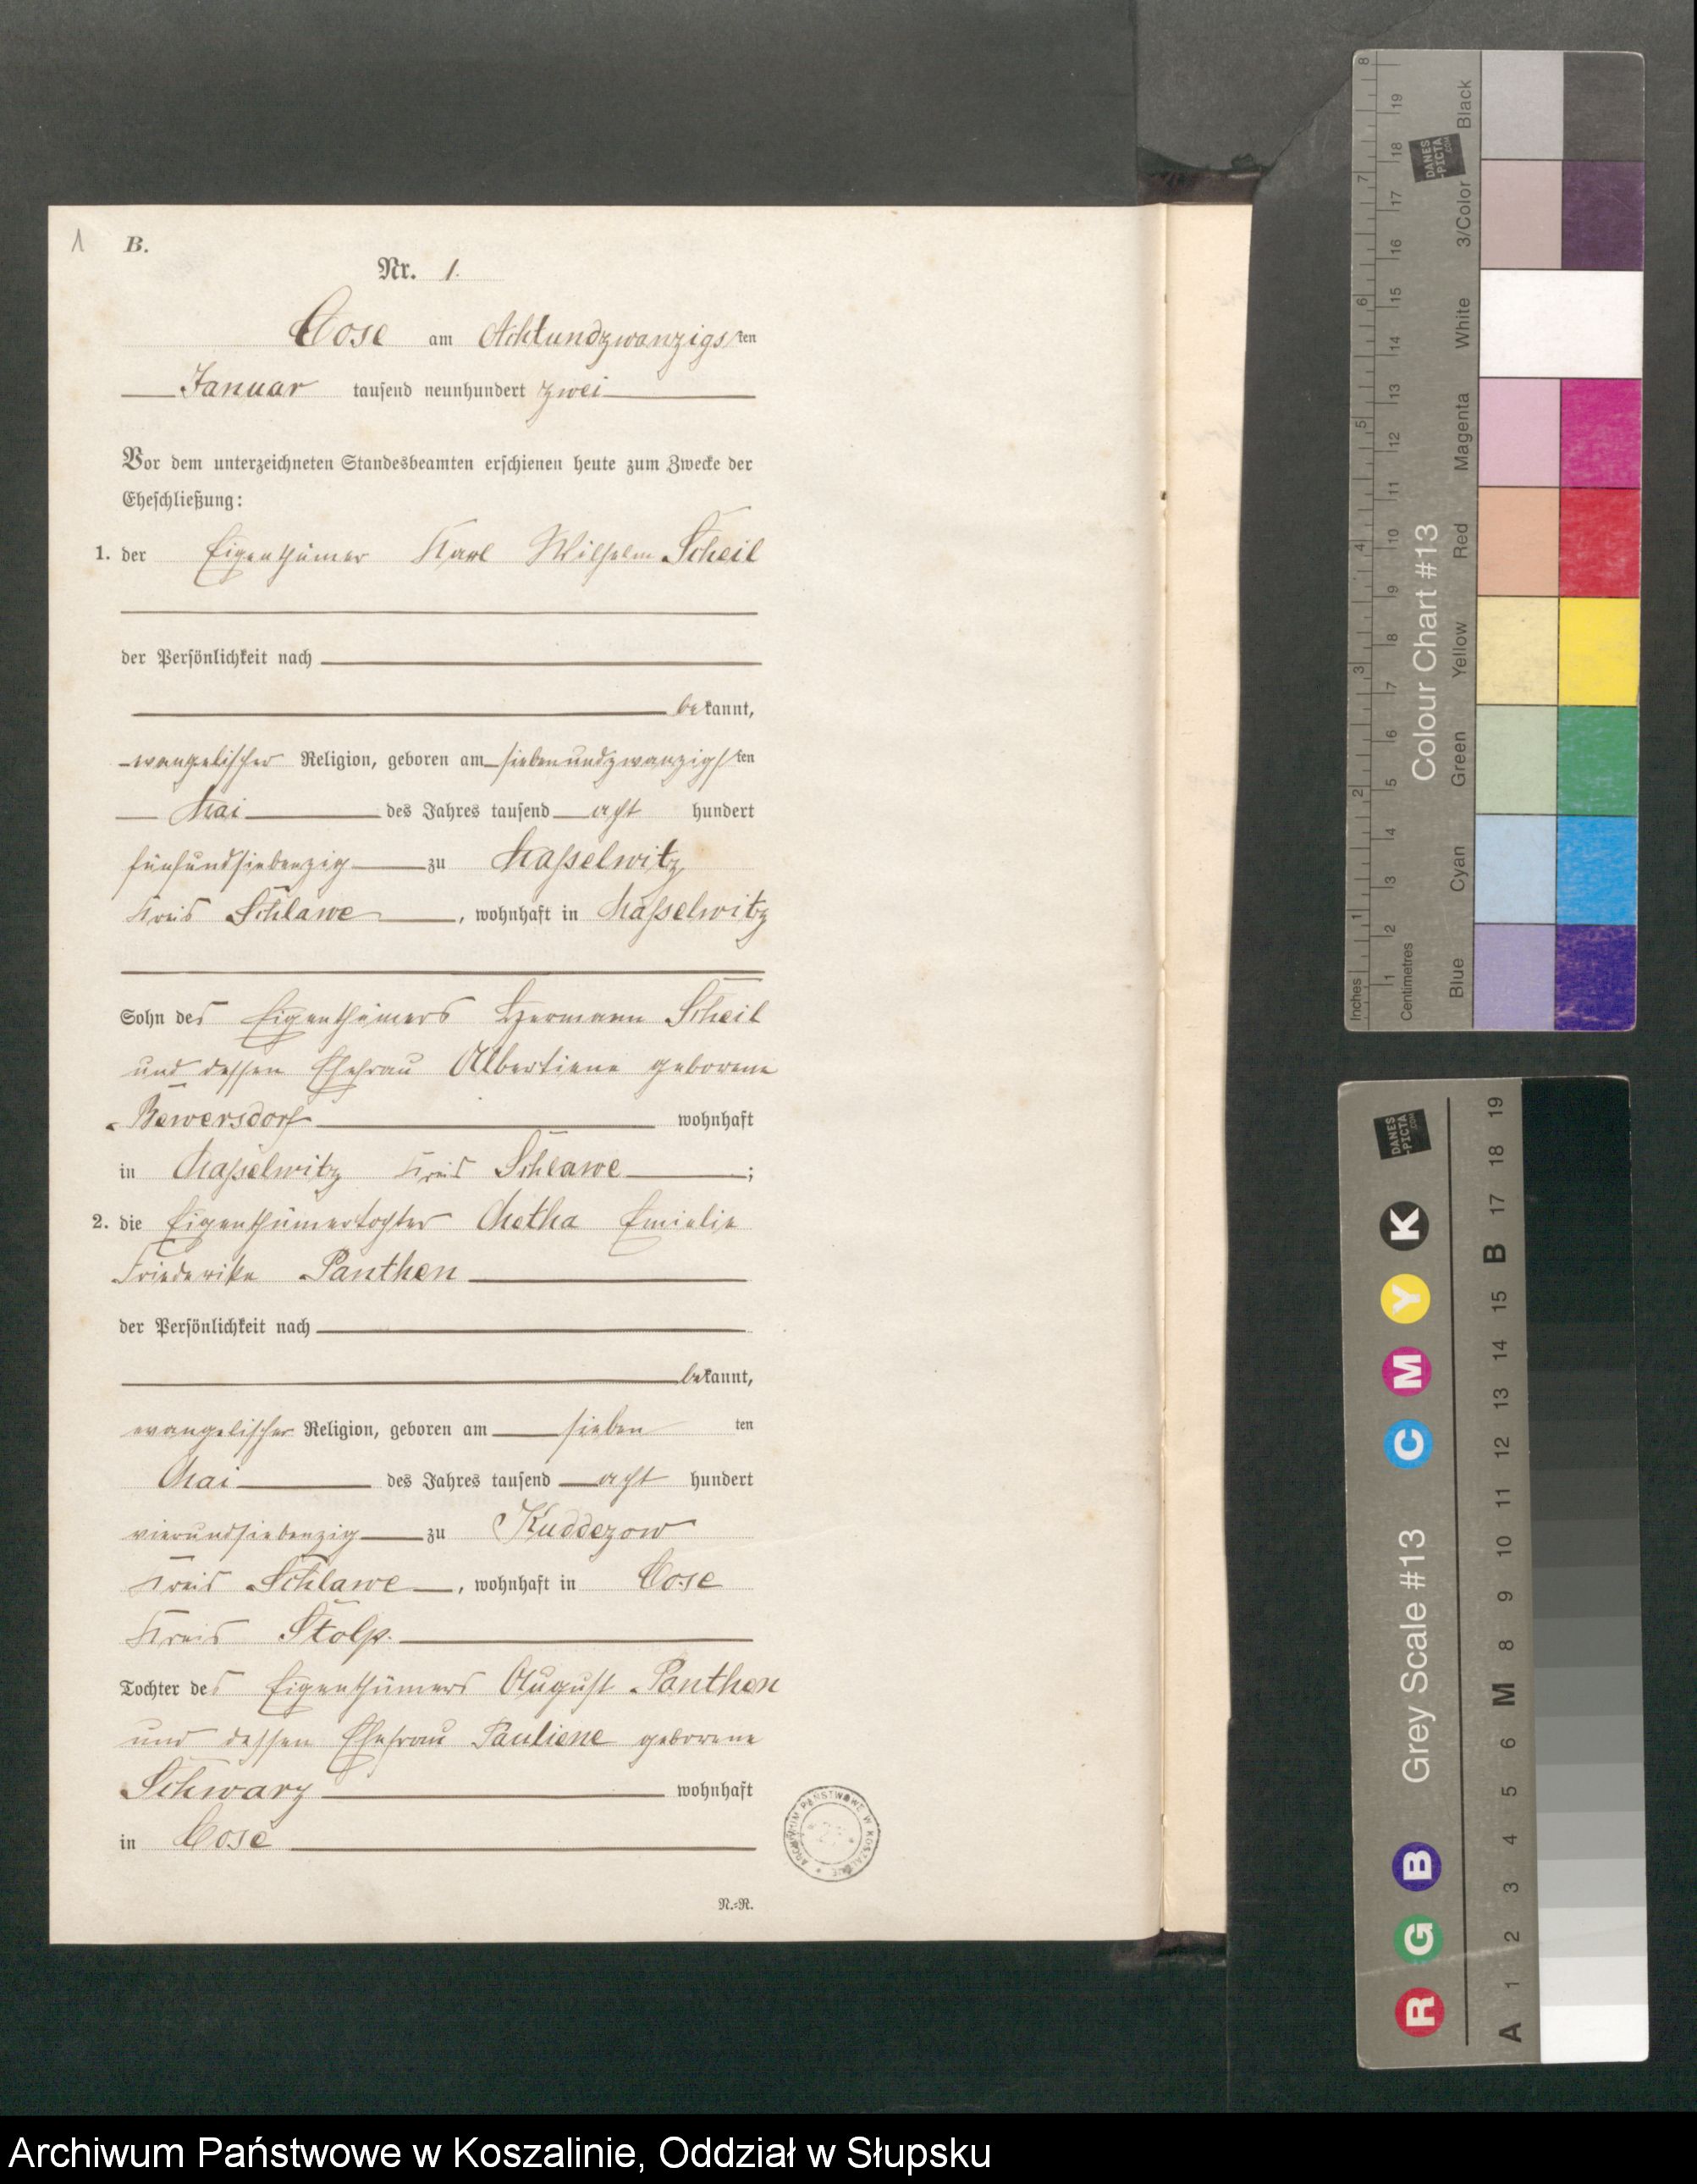 1 B.
Nr. 1.
Cose am Achtundzwanzigsten
Januar tausend neunhundert zwei
Vor dem unterzeichneten Standesbeamten erschienen heute zum Zwecke der
Eheschließung:
1. der Eigenthümer Karl Wilhelm Scheil
der Persönlichkeit nach
bekannt,
evangelischer Religion, geboren am siebenundzwanzigsten
Mai des Jahres tausend acht hundert
fünfundsiebenzig zu Masselwitz
Kreis Schlawe, wohnhaft in Masselwitz
Sohn des Eigenthümers Hermann Scheil
und dessen Ehefrau Albertiene geborene
Bewersdorf wohnhaft
in Masselwitz Kreis Schlawe;
2. die Eigenthümertochter Metha Emielie
Friederike Panthen
der Persönlichkeit nach
bekannt,
evangelischer Religion, geboren am sieben ten
Mai des Jahres tausend acht hundert
vierundsiebenzig zu Kuddezow
Kreis Schlawe, wohnhaft in Cose
Kreis Stolp.
Tochter des Eigenthümers August Panthen
und dessen Ehefrau Pauliene geborene
Schwarz wohnhaft
in Cose
ARCHIWUM PAŃSTWOWE W KOSZALINIE
N.=R.
Inches 1 2 3 4 5 6 7 8
Centimetres 1 2 3 4 5 6 7 8 9 10 11 12 13 14 15 16 17 18 19
DANES-PICTA.COM
Colour Chart #13
Blue Cyan Green Yellow Red Magenta White 3/Color Black
DANES-PICTA.COM
Grey Scale #13
R G B C M Y K
A 1 2 3 4 5 6 M 8 9 10 11 12 13 14 15 B 17 18 19
Archiwum Państwowe w Koszalinie, Oddział w Słupsku